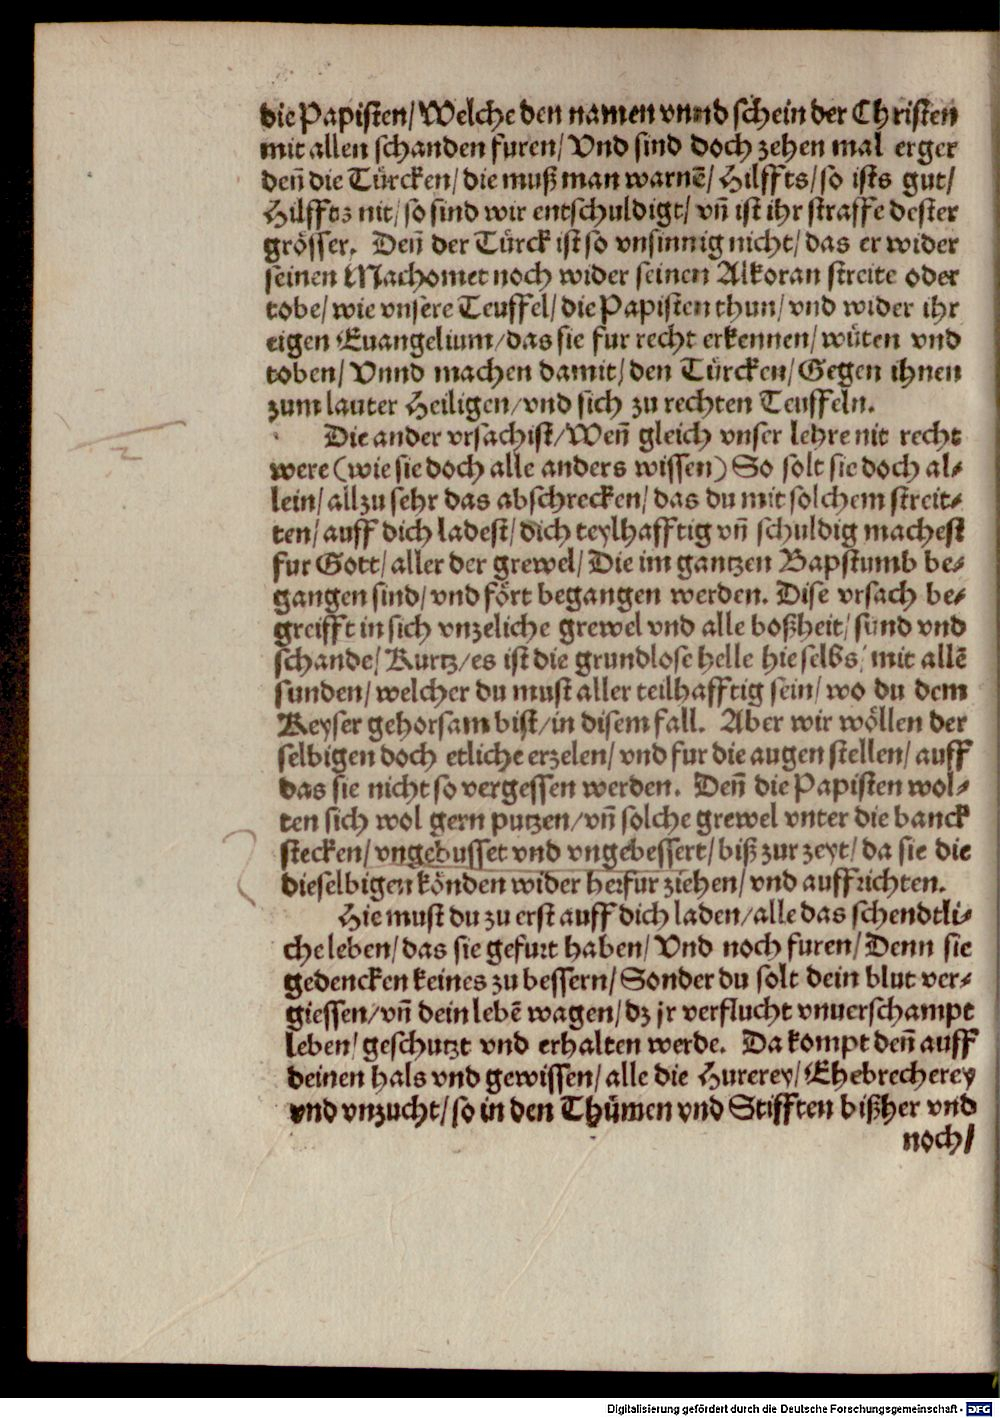 die Papisten/ Welche den namen vnnd schein der Christen
mit allen schanden furen/ Vnd sind doch zehen mal erger
deñ die Türcken/ die muß man warnẽ/ Hilffts/ so ists gut/
Hilfftz nit/ so sind wir entschuldigt/ vñ ist ihr straffe dester
grösser. Deñ der Türck ist so vnsinnig nicht/ das er wider
seinen Machomet noch wider seinen Alkoran streite oder
tobe/ wie vnsere Teuffel/ die Papisten thun/ vnd wider ihr
eigen Euangelium/ das sie fur recht erkennen/ wüten vnd
toben/ Vnnd machen damit/ den Türcken/ Gegen ihnen
zum lauter Heiligen/ vnd sich zu rechten Teuffeln.
Die ander vrsach ist/ Weñ gleich vnser lehre nit recht
were (wie sie doch alle anders wissen) So solt sie doch al-
lein/ allzu sehr das abschrecken/ das du mit solchem streit-
ten/ auff dich ladest/ dich teylhafftig vñ schuldig machest
fur Gott/ aller der grewel/ Die im gantzen Bapstumb be-
gangen sind/ vnd fört begangen werden. Dise vrsach be-
greifft in sich vnzeliche grewel vnd alle boßheit/ sünd vnd
schande/ Kurtz/ es ist die grundlose helle hie selbs/ mit allẽ
sunden/ welcher du must aller teilhafftig sein/ wo du dem
Keyser gehorsam bist/ in disem fall. Aber wir wöllen der
selbigen doch etliche erzelen/ vnd fur die augen stellen/ auff
das sie nicht so vergessen werden. Deñ die Papisten wol-
ten sich wol gern putzen/ vñ solche grewel vnter die banck
stecken/ vngebusset vnd vngebessert/ biß zur zeyt/ da sie die
dieselbigen könden wider herfur ziehen/ vnd auffrichten.
Hie must du zu erst auff dich laden/ alle das schendtli-
che leben/ das sie gefurt haben/ Vnd noch furen/ Denn sie
gedencken keines zu bessern/ Sonder du solt dein blut ver-
giessen/ vñ dein lebẽ wagen/ dz jr verflucht vnuerschampt
leben/ geschutzt vnd erhalten werde. Da kompt deñ auff
deinen hals vnd gewissen/ alle die Hurerey/ Ehebrecherey
vnd vnzucht/ so in den Thümen vnd Stifften bißher vnd
noch/
Digitalisierung gefördert durch die Deutsche Forschungsgemeinschaft - DFG